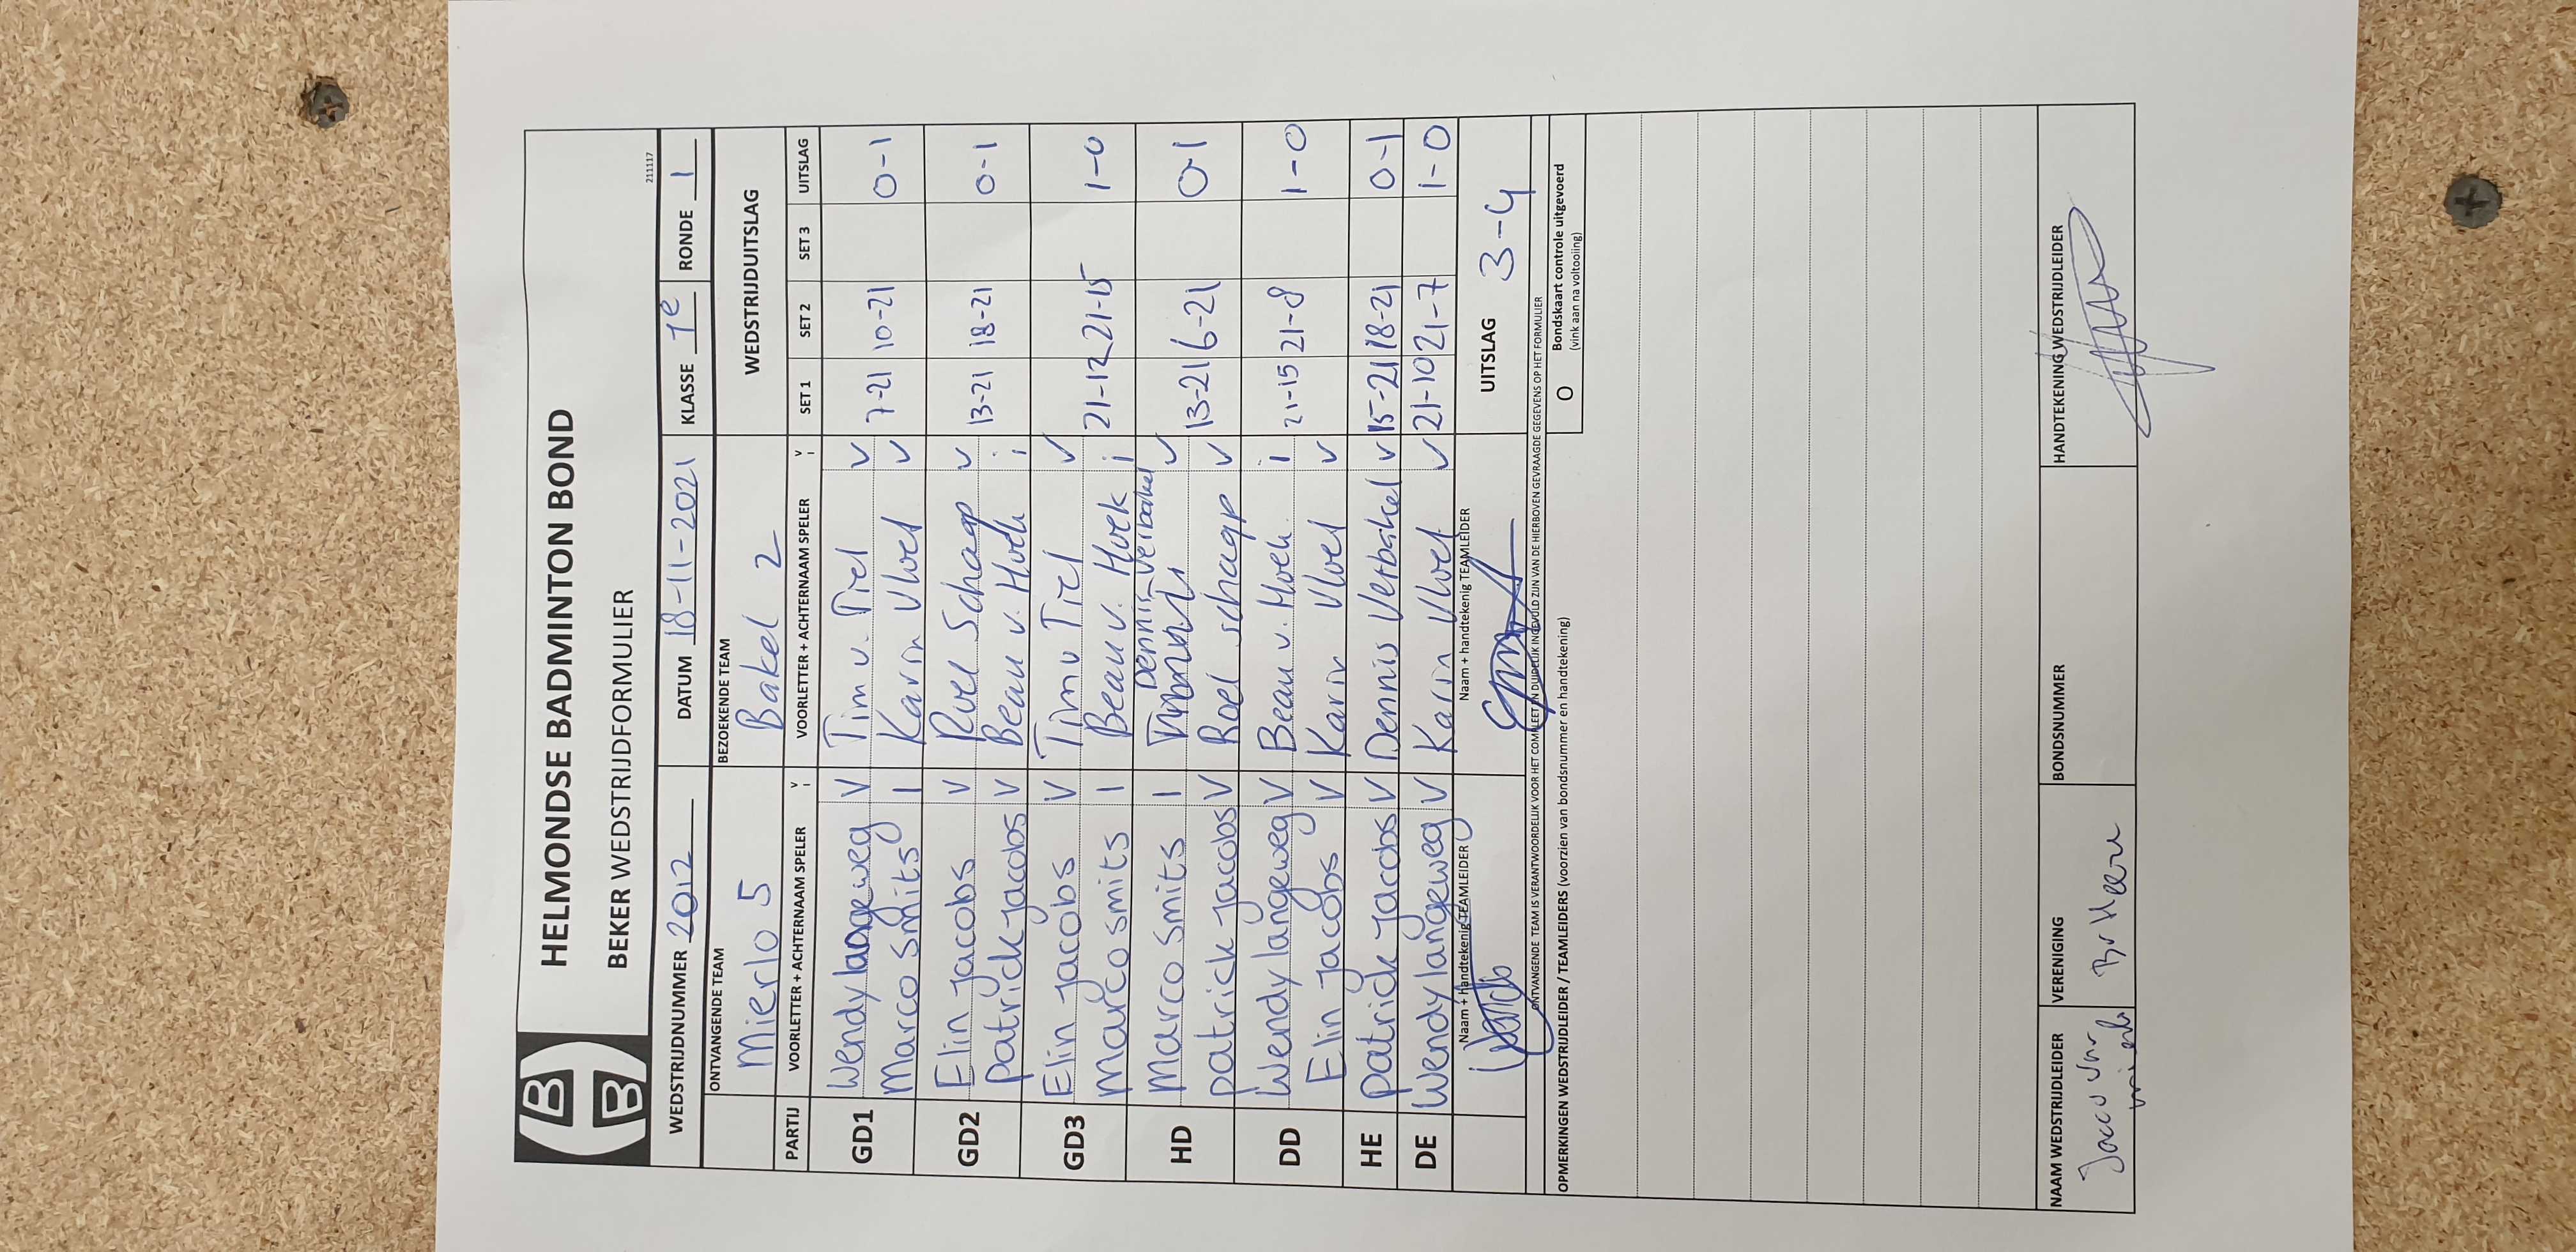 HELMONDSE BADMINTON BOND
BEKER WEDSTRIJDFORMULIER
211117
WEDSTRIJDNUMMER 2012 DATUM 18-11-2021 KLASSE 1e RONDE 1
ONTVANGENDE TEAM BEZOEKENDE TEAM WEDSTRIJDUITSLAG
Mierlo 5 Bakel 2
PARTIJ VOORLETTER + ACHTERNAAM SPELER V I VOORLETTER + ACHTERNAAM SPELER V I SET 1 SET 2 SET 3 UITSLAG
GD1 Wendy langeweg V Tim v. Tiel V 7-21 10-21 0-1
Marco smits I Karin Vloet V
GD2 Elin jacobs V Roel Schaap V 13-21 18-21 0-1
patrick jacobs V Beau v. Hoek i
GD3 Elin jacobs V Tim v Tiel V 21-12 21-15 1-0
Marco smits I Beau v. Hoek i
HD Marco smits I Dennis Verbakel V 13-21 6-21 0-1
patrick jacobs V Roel schaap V
DD Wendy langeweg V Beau v. Hoek i 21-15 21-8 1-0
Elin jacobs V Karin Vloet V
HE patrick jacobs V Dennis Verbakel V 15-21 18-21 0-1
DE Wendy langeweg V Karin Vloet V 21-10 21-7 1-0
Naam + handtekenig TEAMLEIDER Naam + handtekenig TEAMLEIDER UITSLAG 3-4
ONTVANGENDE TEAM IS VERANTWOORDELIJK VOOR HET COMPLEET EN DUIDELIJK INGEVULD ZIJN VAN DE HIERBOVEN GEVRAAGDE GEGEVENS OP HET FORMULIER
OPMERKINGEN WEDSTRIJDLEIDER / TEAMLEIDERS (voorzien van bondsnummer en handtekening)
O Bondskaart controle uitgevoerd
(vink aan na voltooiing)
NAAM WEDSTRIJDLEIDER VERENIGING BONDSNUMMER HANDTEKENING WEDSTRIJDLEIDER